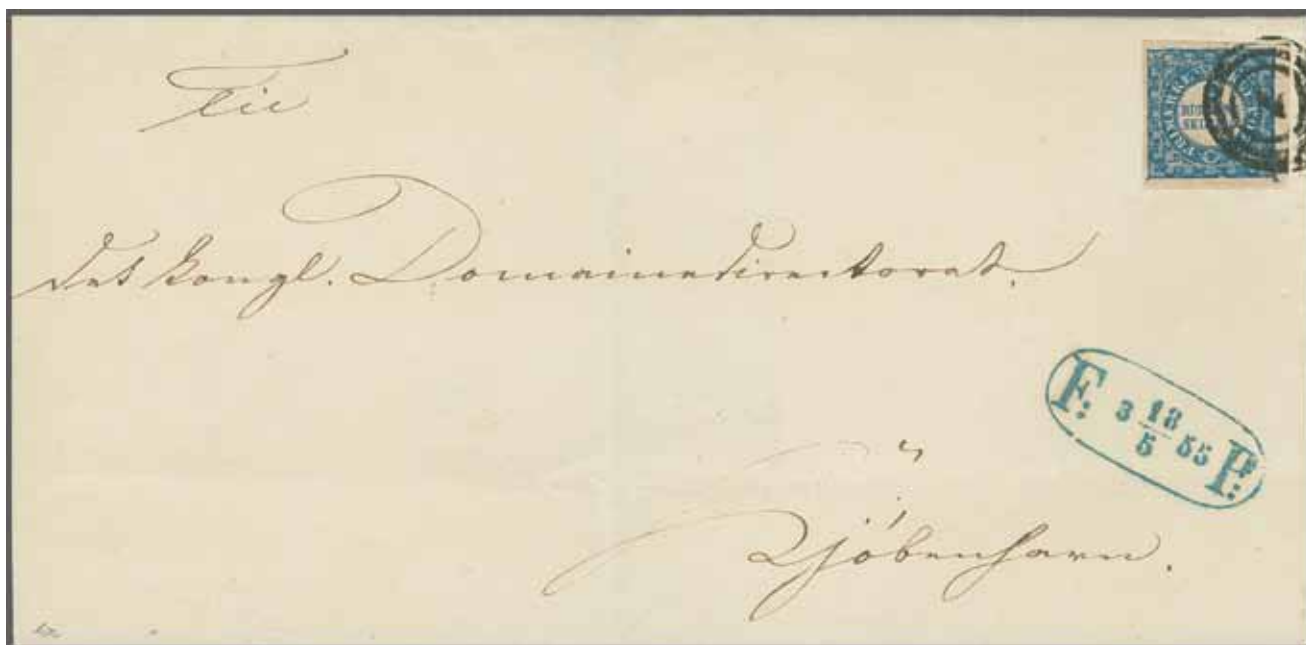 Til
det kongl. Domainedirectorat.
F: 3 18/5 55 P:
Kjöbenhavn.